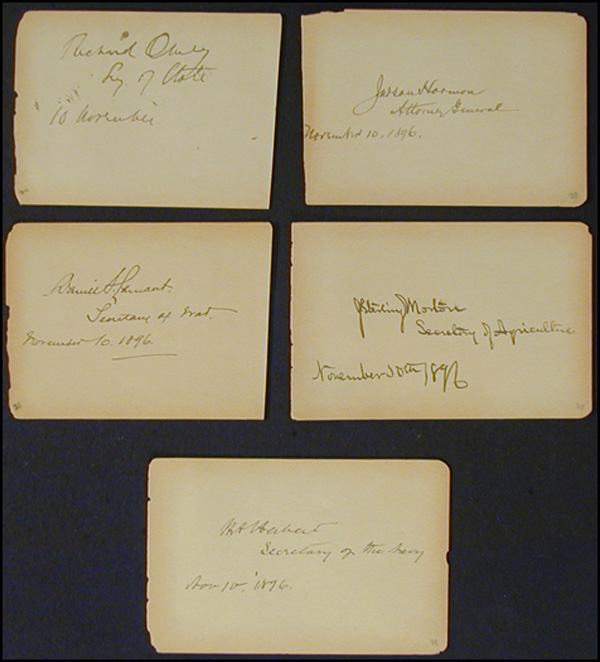 Richard Olney
Sey. of State
10 November
Judson Harmon
Attorney General
November 10, 1896.
Daniel S. Lamont.
Secretary of War.
November 10. 1896.
J Sterling Morton
Secretary of Agriculture
November 10th 1896
H A Herbert
Secretary of the Navy
Nov 10, 1896.